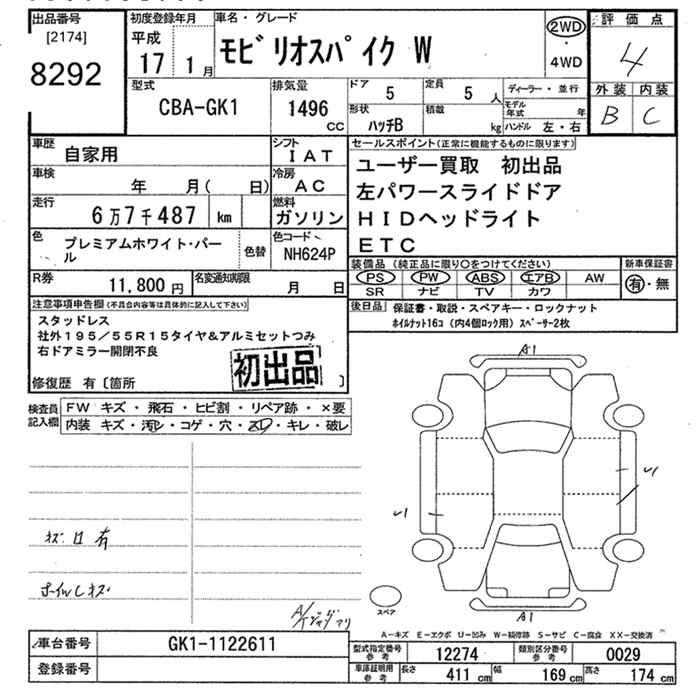 出品番号
[2174]
8292
初度登録年月
平成
17 1月
車名・グレード
モビリオスパイク W
2WD
・
4WD
評価点
4
外装 内装
B C
型式
CBA-GK1
排気量
1496
CC
ドア
5
定員
5 人
形状
ハッチB
積載
kg
ディーラー・並行
モデル年式 年
ハンドル 左・右
車歴
自家用
シフト
IAT
車検
年 月( 日)
冷房
AC
走行
6万7千487 km
燃料
ガソリン
色
プレミアムホワイト・パール
色替
色コード
NH624P
R券
11,800円
名変通知期限
月 日
セールスポイント(正常に機能するものに限ります)
ユーザー買取 初出品
左パワースライドドア
HIDヘッドライト
ETC
装備品(純正品に限り○をつけてください)
PS PW ABS エアB AW
SR ナビ TV カワ
新車保証書
有・無
後日品
保証書・取説・スペアキー・ロックナット
ホイルナット16コ(内4個ロック用)スペーサー2枚
注意事項申告欄(不具合内容等は具体的に記入して下さい)
スタッドレス
社外195/55R15タイヤ&アルミセットつみ
右ドアミラー開閉不良
初出品
修復歴 有〔箇所 〕
検査員記入欄
FW キズ・飛石・ヒビ割・リペア跡・×要
内装 キズ・汚レ・コゲ・穴・スレ・キレ・破レ
キズ凹有
ホイルキズ
A1
A1
スペア
A-キズ E-エクボ U-凹み W-補修跡 S-サビ C-腐食 XX-交換済
車台番号
GK1-1122611
登録番号
型式指定番号
参考
12274
類別区分番号
参考
0029
車庫証明用
参考
長さ 411 cm 幅 169 cm 高さ 174 cm